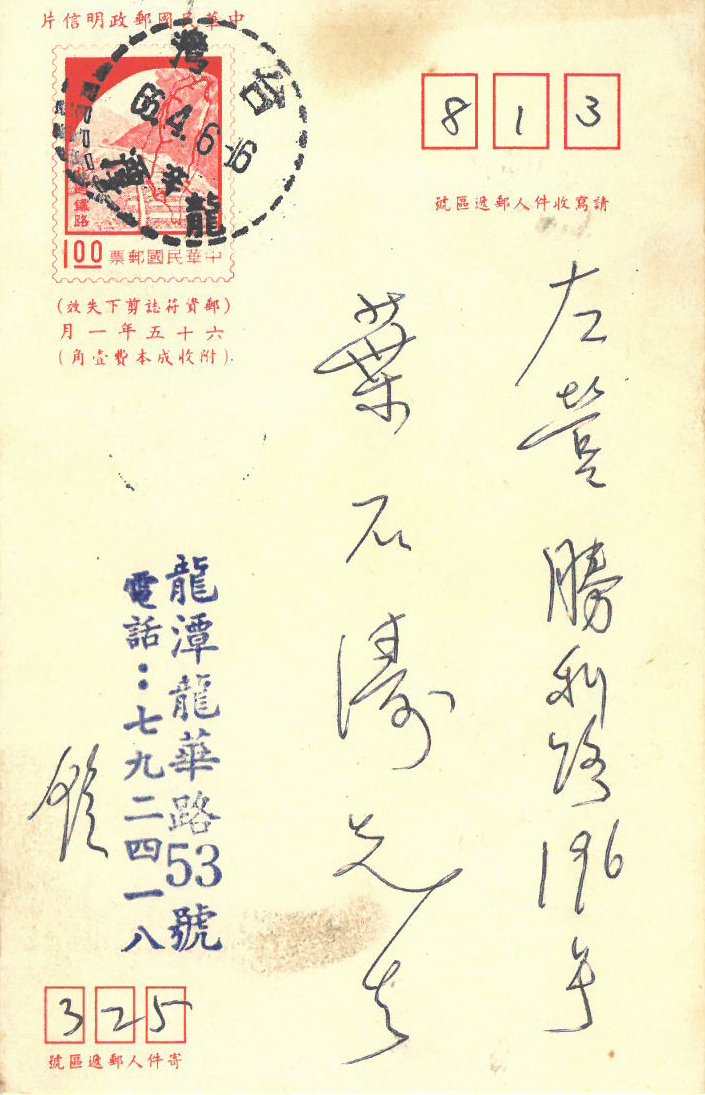 中華民國郵政明信片
台灣
66.4.6.16
龍
華
鐵路
1.00
中華民國郵票
(郵資符誌剪下失效)
六十五年一月
(附收成本費壹角).
813
請寫收件人郵遞區號
左營勝利路196号
葉石濤先生
龍潭龍華路53號
電話：七九二四一八
鍾
325
寄件人郵遞區號